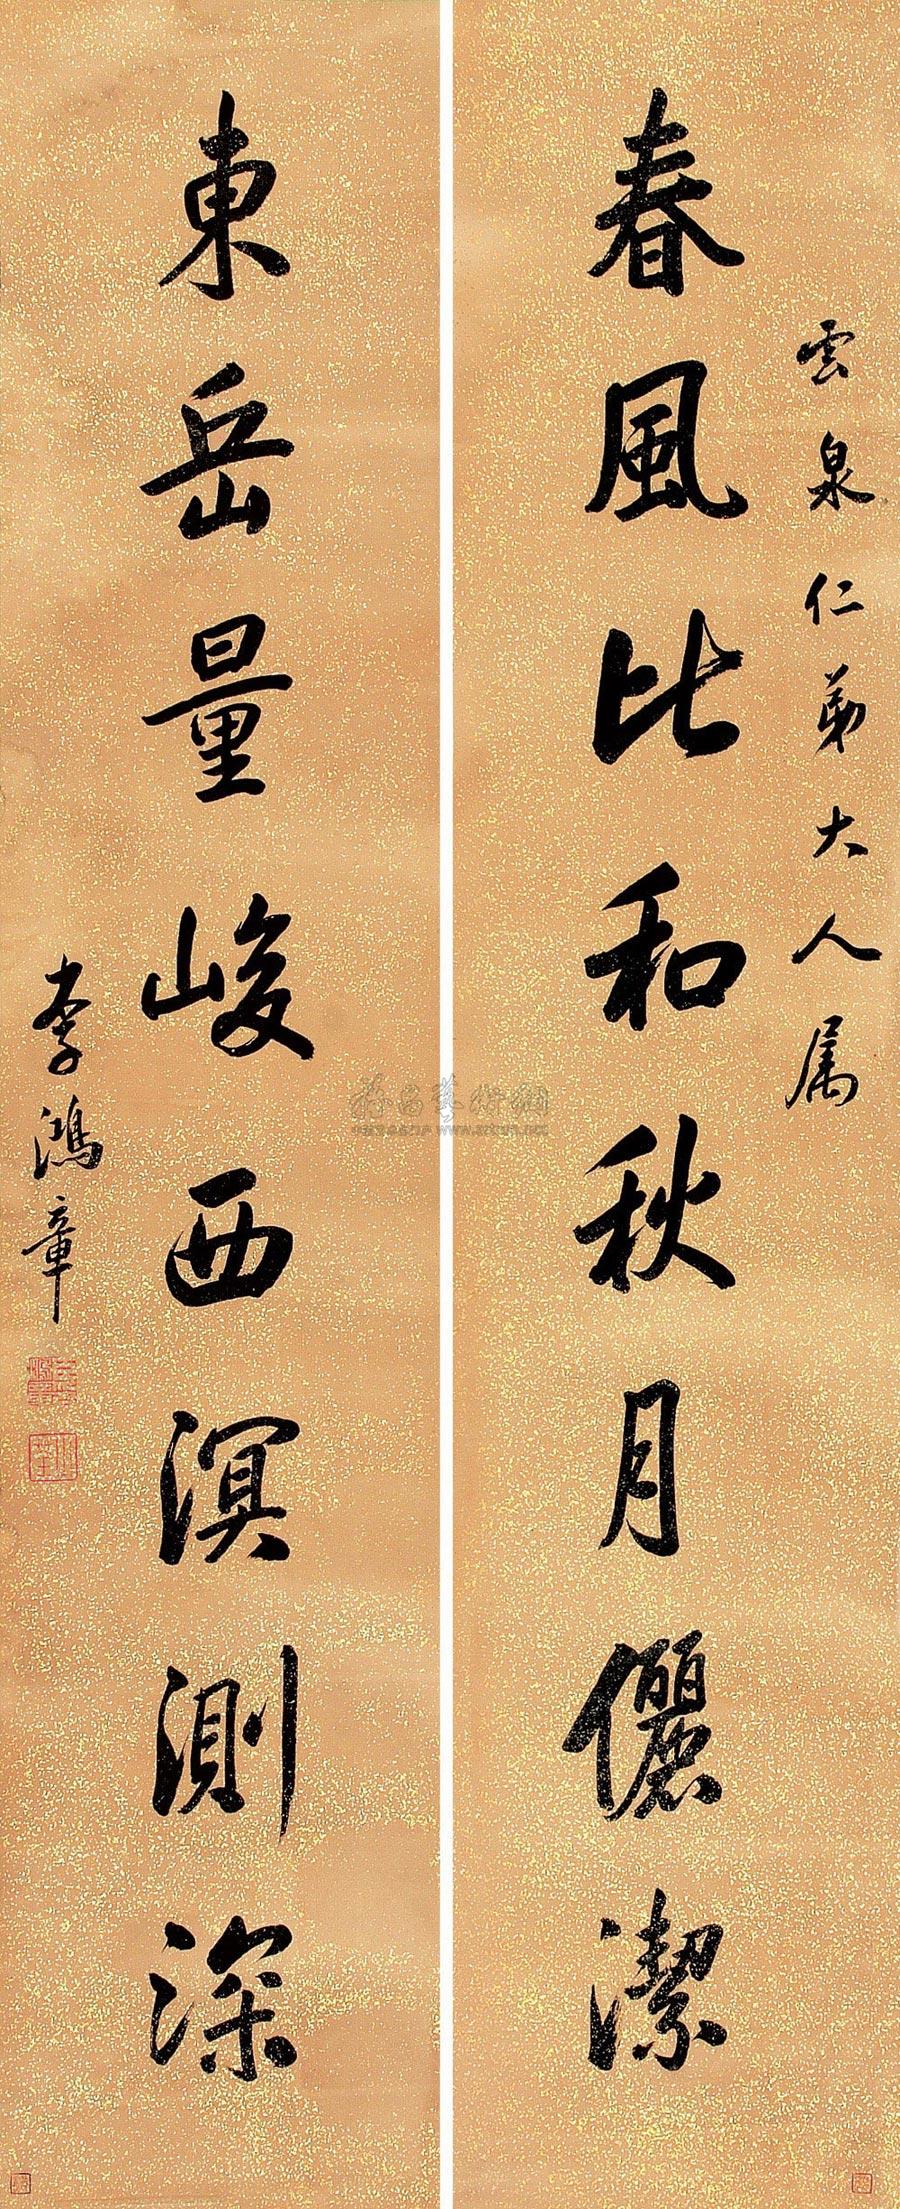 雲泉仁弟大人属
春風比和秋月儷潔
東岳量峻西溟測深
李鴻章